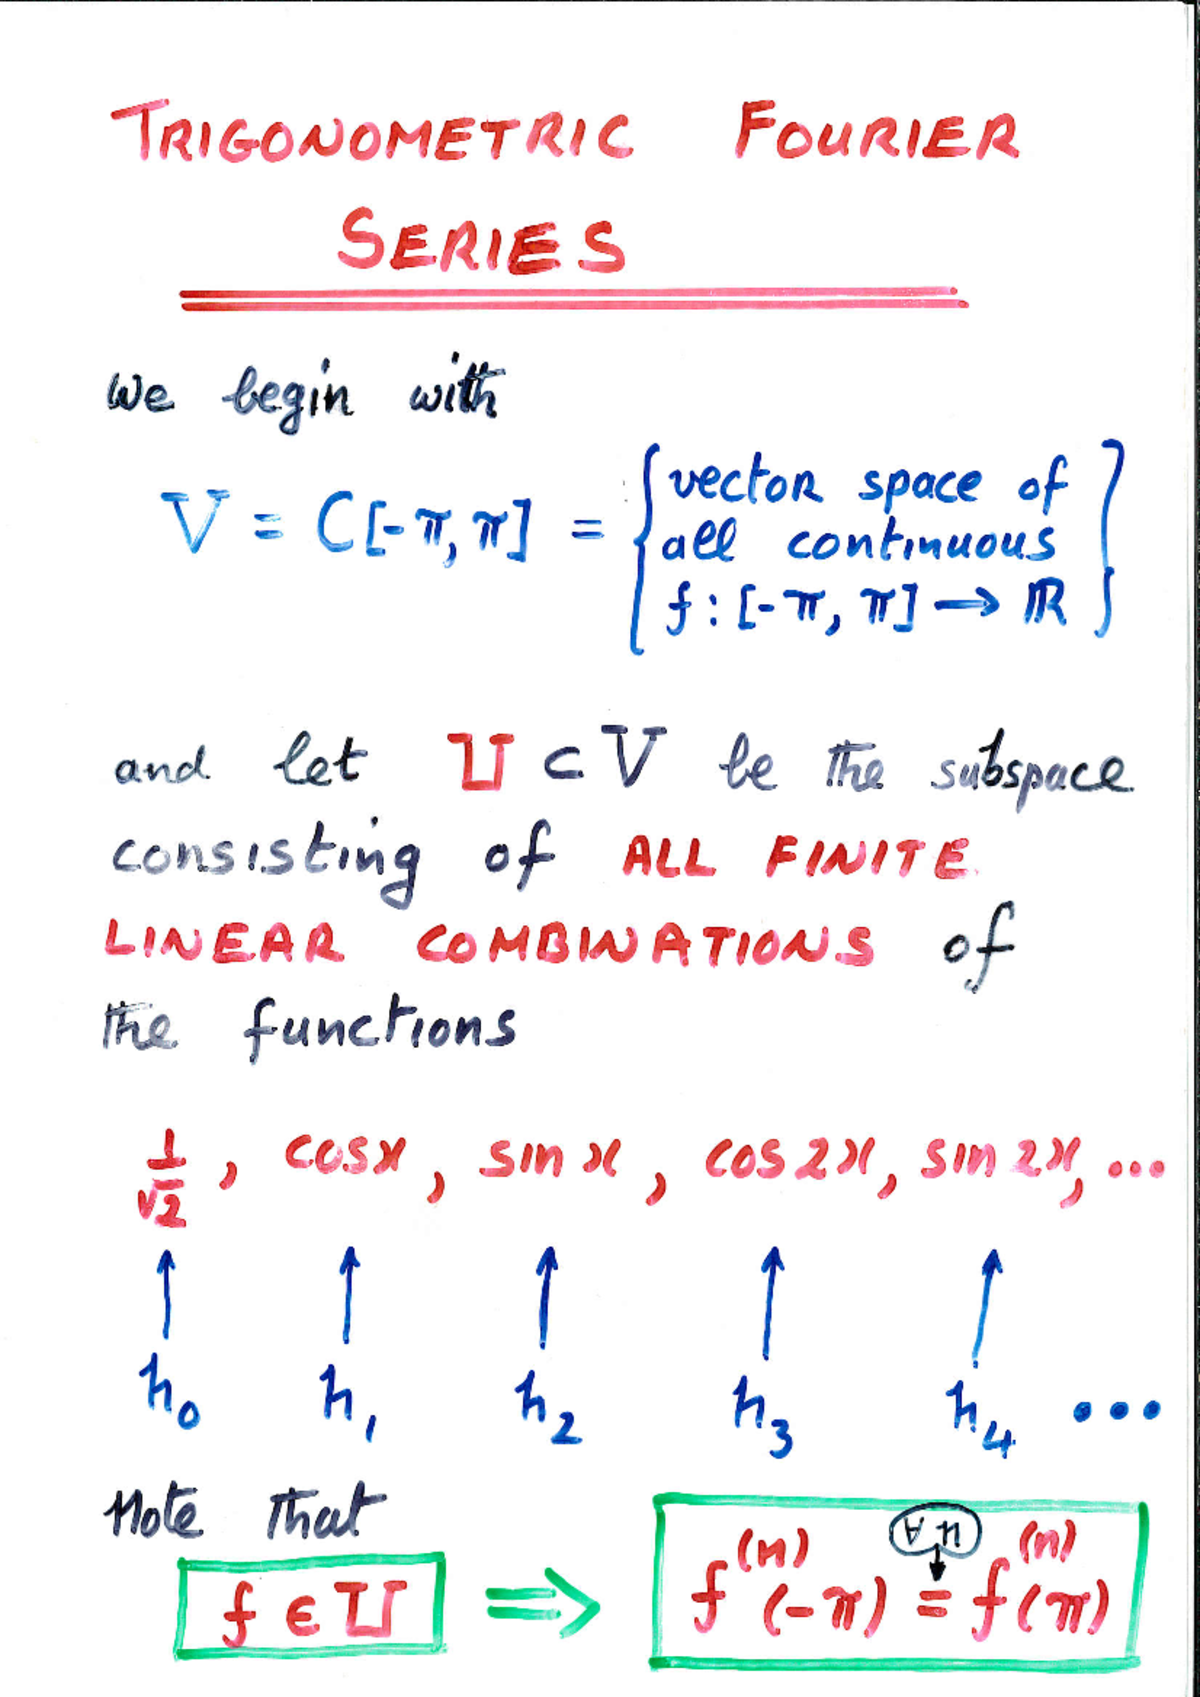 TRIGONOMETRIC FOURIER
SERIES
We begin with
V = C[-π, π] = {vector space of
all continuous
f : [-π, π] → ℝ}
and let U ⊂ V be the subspace
consisting of ALL FINITE
LINEAR COMBINATIONS of
the functions
1/√2, cos x, sin x, cos 2x, sin 2x, ...
↑ ↑ ↑ ↑ ↑
h₀ h₁ h₂ h₃ h₄ ...
Note that
∀ n
f ∈ U ⇒ f⁽ⁿ⁾(-π) = f⁽ⁿ⁾(π)